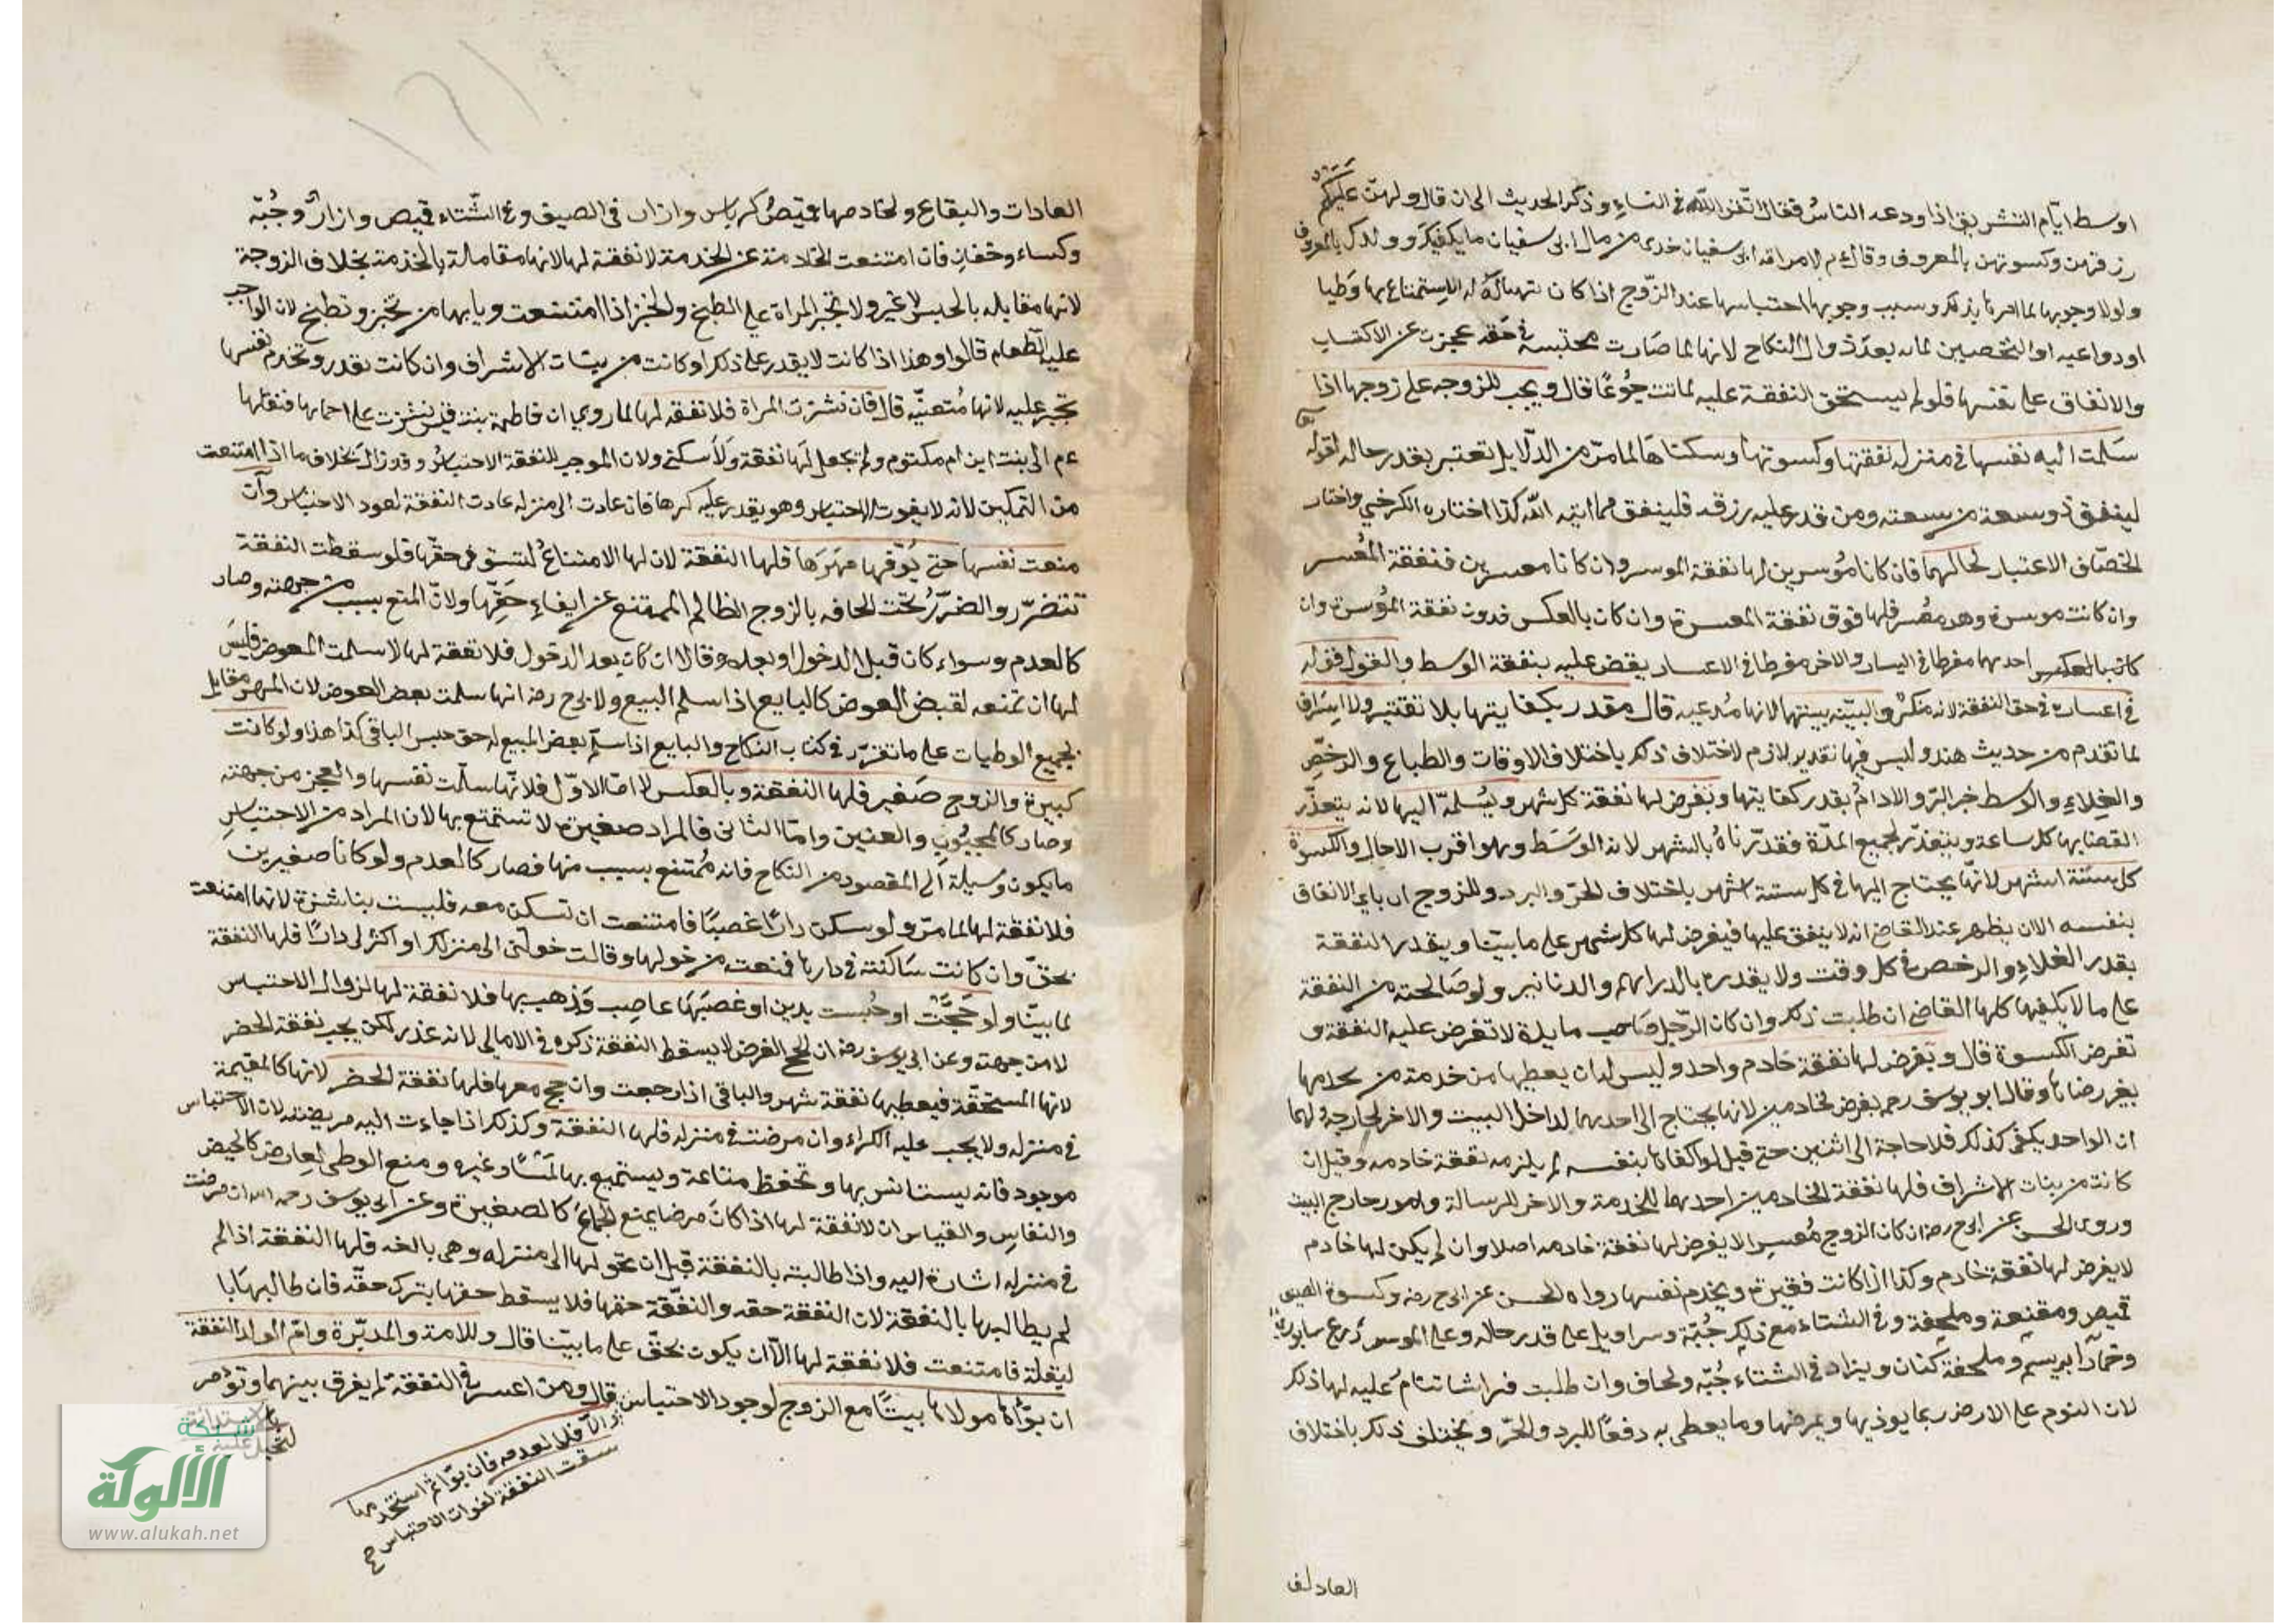 اوسط ايام التشريق اذا ودعه الناس فقال اتقوا الله في النساء وذكر الحديث الى ان قال ولهن عليكم
رزقهن وكسوتهن بالمعروف وقال عم لامراة ابى سفيان خذى من مال ابى سفيان ما يكفيك وولدك بالمعروف
ولولا وجوبها لما امرنا بذلك وسبب وجوبها احتباسها عند الزوج اذا كان يتهيأ له الاستمتاع بها وطيا
او دواعيه او التحصين لمائه بعد زوال النكاح لانها لما صارت محتبسة في حقه عجزت عن الاكتساب
والانفاق على نفسها فلو لم يستحق النفقة عليه لماتت جوعًا قال ويجب للزوجه على زوجها اذا
سلمت اليه نفسها في منزله نفقتها وكسوتها وسكناها لما مر من الدلايل تعتبر بقدر حاله لقوله تعا
لينفق ذو سعة من سعته ومن قدر عليه رزقه فلينفق مما اتيه الله كذا اختاره الكرخي واختار
الخصاف الاعتبار لحالهما فان كانا موسرين لها نفقة الموسر وان كانا معسرين فنفقة المعسر
وان كانت موسرة وهو معسر فلها فوق نفقة المعسرة وان كان بالعكس فدون نفقة الموسرة وان
كان احديهما مفرطا في اليسار والاخر مفرطا في الاعسار يقضى عليه بنفقة الوسط والقول قوله
في اعساره في حق النفقة لانه منكر والبينه بينتها لانها مدعيه قال مقدر بكفايتها بلا تقتير ولا اسراف
لما تقدم من حديث هند وليس فيها تقدير لازم لاختلاف ذلك باختلاف الاوقات والطباع والرخص
والغلاء والوسط خبز البر والادام بقدر كفايتها ويفرض لها نفقة كل شهر ويسلمه اليها لانه يتعذر
القضا بها كل ساعة ويتعذر لجميع المدة فقدرناه بالشهر لانه الوسط وهو اقرب الاجال والكسوة
كل ستة اشهر لانها يحتاج اليها في كل ستة اشهر باختلاف الحر والبرد وللزوج ان يلي الانفاق
بنفسه الا ان يظهر عند القاضي انه لا ينفق عليها فيفرض لها كل شهر على ما بينا ويقدر النفقة
بقدر الغلاء والرخص في كل وقت ولا يقدره بالدراهم والدنانير ولو صالحته من النفقة
على ما لا يكفيها كلها القاضي ان طلبت ذلك وان كان الرجل صاحب مايدة لا تفرض عليه النفقة و
تفرض الكسوة قال ويفرض لها نفقة خادم واحد وليس له ان يعطيها من خدمة من يخدمها
بغير رضاها وقال ابو يوسف رحمه يفرض لخادمين لانها يحتاج الى احديهما لداخل البيت والاخر لخارجه لهما
ان الواحد يكفى كذلك فلا حاجة الى اثنين حتى قيل لو كفاها بنفسه لم يلزمه نفقة خادمه وقيل ان
كانت من بنات الاشراف فلها نفقة الخادمين احدهما للخدمة والاخر للرسالة وامور خارج البيت
وروى الحسن عن ابى ح رضه ان كان الزوج معسرا لا يفرض لها نفقة خادمه اصلا وان لم يكن لها خادم
لا يفرض لها نفقة خادم وكذا اذا كانت فقيرة ويخدم نفسها رواه الحسن عن ابى ح رضه وكسوة الصيف
قميص ومقنعة وملحفة وفي الشتاء مع ذلك جبة وسراويل على قدر حاله وعلى الموسر درع سابورى
وخمار ابريسم وملحفة كتان ويزاد في الشتاء جبه ولحاف وان طلبت فراشا تنام عليه لها ذلك
لان النوم على الارض ربما يوذيها ويمرضها وما يعطى به دفعًا للبرد والحر ويختلف ذلك باختلاف
العادات
العادات والبقاع ولخادمها قميص كرباس وازار في الصيف وفي الشتاء قميص وازار وجبة
وكساء وخفان فان امتنعت الخادمة عن الخدمة لا نفقة لها لانها مقابلة بالخدمة بخلاف الزوجة
لانها مقابله بالحبس لا غير ولا تجبر المراة على الطبخ والخبز اذا امتنعت وياتيها من تخبز وتطبخ لان الواجب
عليه الطعام قالوا وهذا اذا كانت لا يقدر على ذلك او كانت من بنات الاشراف وان كانت تقدر وتخدم نفسها
تجبر عليه لانها متعنته قال فان نشزت المراة فلا نفقه لها لما روي ان فاطمة بنت قيس نشزت على احمائها فنقلها
عم الى بيت ابن ام مكتوم ولم يجعل لها نفقة ولا سكنى ولان الموجب للنفقة الاحتباس وقد زال بخلاف ما اذا امتنعت
من التمكين لانه لا يفوت الاحتباس وهو يقدر عليه كرها فان عادت الى منزله عادت النفقة لعود الاحتباس وان
منعت نفسها حتى يوفيها مهرها فلها النفقة لان لها الامتناع لتستوفى حقها فلو سقطت النفقة
تتضرر والضرر يجب الحاقه بالزوج الظالم الممتنع عن ايفاء حقها ولان المنع بسبب من جهته وصار
كالعدم وسواء كان قبل الدخول او بعده وقالا ان كان بعد الدخول فلا نفقة لها لانها سلمت المعوض فليس
لها ان تمنعه لقبض العوض كالبايع اذا سلم المبيع ولابى ح رضه انها سلمت بعض العوض لان المهر مقابل
بجميع الوطيات على ما تقرر في كتاب النكاح والبايع اذا سلم بعض المبيع له حق حبس الباقى كذا هذا ولو كانت
كبيرة والزوج صغير فلها النفقة وبالعكس لا اما الاول فلانها سلمت نفسها والعجز من جهته
وصار كالمجبوب والعنين واما الثانى فالمراد صغيرة لا تستمتع بها لان المراد من الاحتباس
ما يكون وسيلة الى المقصود من النكاح فانه ممتنع بسبب منها فصار كالعدم ولو كانا صغيرين
فلا نفقة لها لما مر ولو سكن دارًا غصبًا فامتنعت ان تسكن معه فليست بناشزة لانها امتنعت
بحق وان كانت ساكنة في دارها فمنعته من دخولها وقالت حولنى الى منزلك او اكترلى دارًا فلها النفقة
لما بينا ولو حجت او حبست بدين او غصبها غاصب وذهب بها فلا نفقة لها لزوال الاحتباس
لا من جهته وعن ابى يوسف رضه ان الحج الفرض لا يسقط النفقة ذكره في الامالى لانه عذر لكن يجب نفقة الحضر
لانها المستحقة فيعطيها نفقة شهر والباقى اذا رجعت وان حج معها فلها نفقة الحضر لانها كالمقيمة
في منزله ولا يجب عليه الكراء وان مرضت في منزله فلها النفقة وكذلك اذا جاءت اليه مريضة لان الاحتباس
موجود فانه يستانس بها وتحفظ متاعه ويستمتع بها لمسًا وغيره ومنع الوطى لعارض كالحيض
والنفاس والقياس ان لا نفقة لها اذا كان مرضا يمنع الجماع كالصغيرة وعن ابى يوسف رحمه الله ان مرضت
في منزله اشارة اليه واذا طالبته بالنفقة قبل ان يحولها الى منزله وهى بالغه فلها النفقة اذا لم
لم يطالبها بالنقلة لان النقلة حقه والنفقة حقها فلا يسقط حقها بترك حقه فان طالبها با
لنقلة فامتنعت فلا نفقة لها الا ان يكون بحق على ما بينا قال وللامة والمدبرة وام الولد النفقة
ان بواها مولاها بيتًا مع الزوج لوجود الاحتباس قال ومن اعسر في النفقة لم يفرق بينهما وتؤمر
والا فلا لعدمه فان بوأ ثم استخدمها
سقطت النفقة لفوات الاحتباس صح
شبكة
الألوكة
www.alukah.net